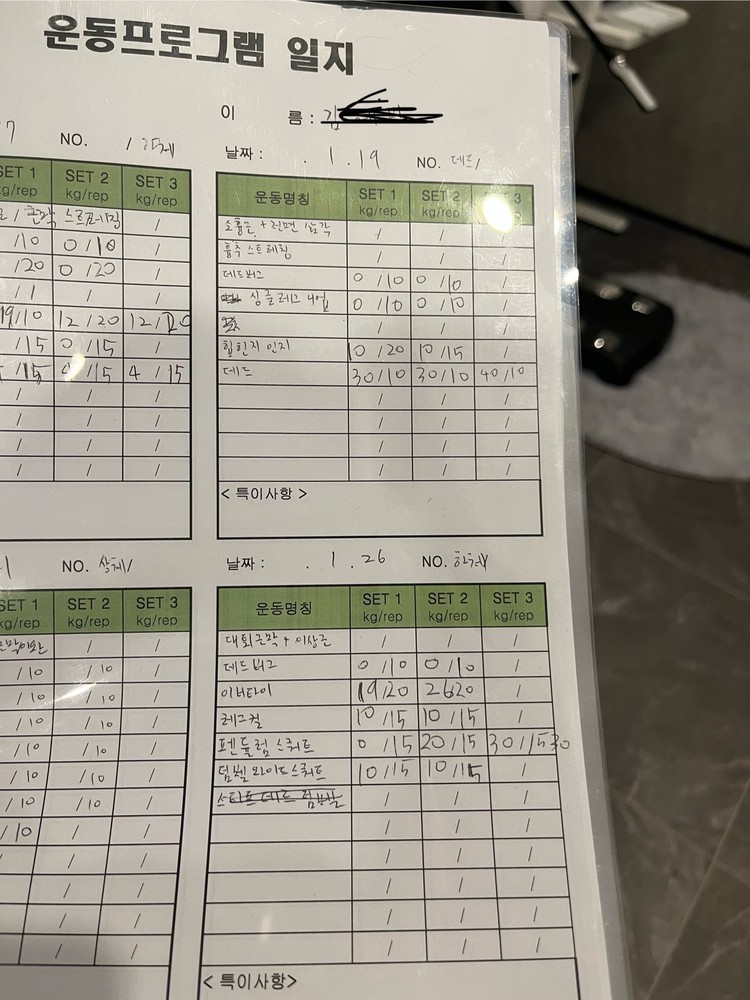 운동프로그램 일지
이 름 : 김
7 NO. /
SET 1 SET 2 SET 3
kg/rep kg/rep kg/rep
/ 스트레칭 /
/10 0/10 /
/20 0/20 /
/1 / /
19/10 12/20 12/20
/15 0/15 /
/15 /15 4/15
/ / /
/ / /
/ / /
/ / /
날짜 : . 1 . 19 NO. 데드/
운동명칭 SET 1 SET 2 3
kg/rep kg/rep
소흉근 + 전면 삼각 / / /
흉추 스트레칭 / / /
데드버그 0/10 0/10 /
싱글레그 니업 0/10 0/10 /
/ / /
힙힌지 인지 10/20 10/15 /
데드 30/10 30/10 40/10
/ / /
/ / /
/ / /
/ / /
< 특이사항 >
1 NO. 상체/
SET 1 SET 2 SET 3
kg/rep kg/rep kg/rep
/ /
/10 /10 /
/10 /10 /
/10 /10 /
/10 /10 /
/10 /10 /
/10 /10 /
/10 / /
/ / /
/ / /
/ / /
/ / /
날짜 : . 1 . 26 NO. 하체/
운동명칭 SET 1 SET 2 SET 3
kg/rep kg/rep kg/rep
대퇴근막 + 이상근 / / /
데드버그 0/10 0/10 /
이너타이 19/20 26/20 /
레그컬 10/15 10/15 /
펜듈럼 스쿼트 0/15 20/15 30/15 30
덤벨 와이드스쿼트 10/15 10/15 /
/ / /
/ / /
/ / /
/ / /
/ / /
/ / /
< 특이사항>